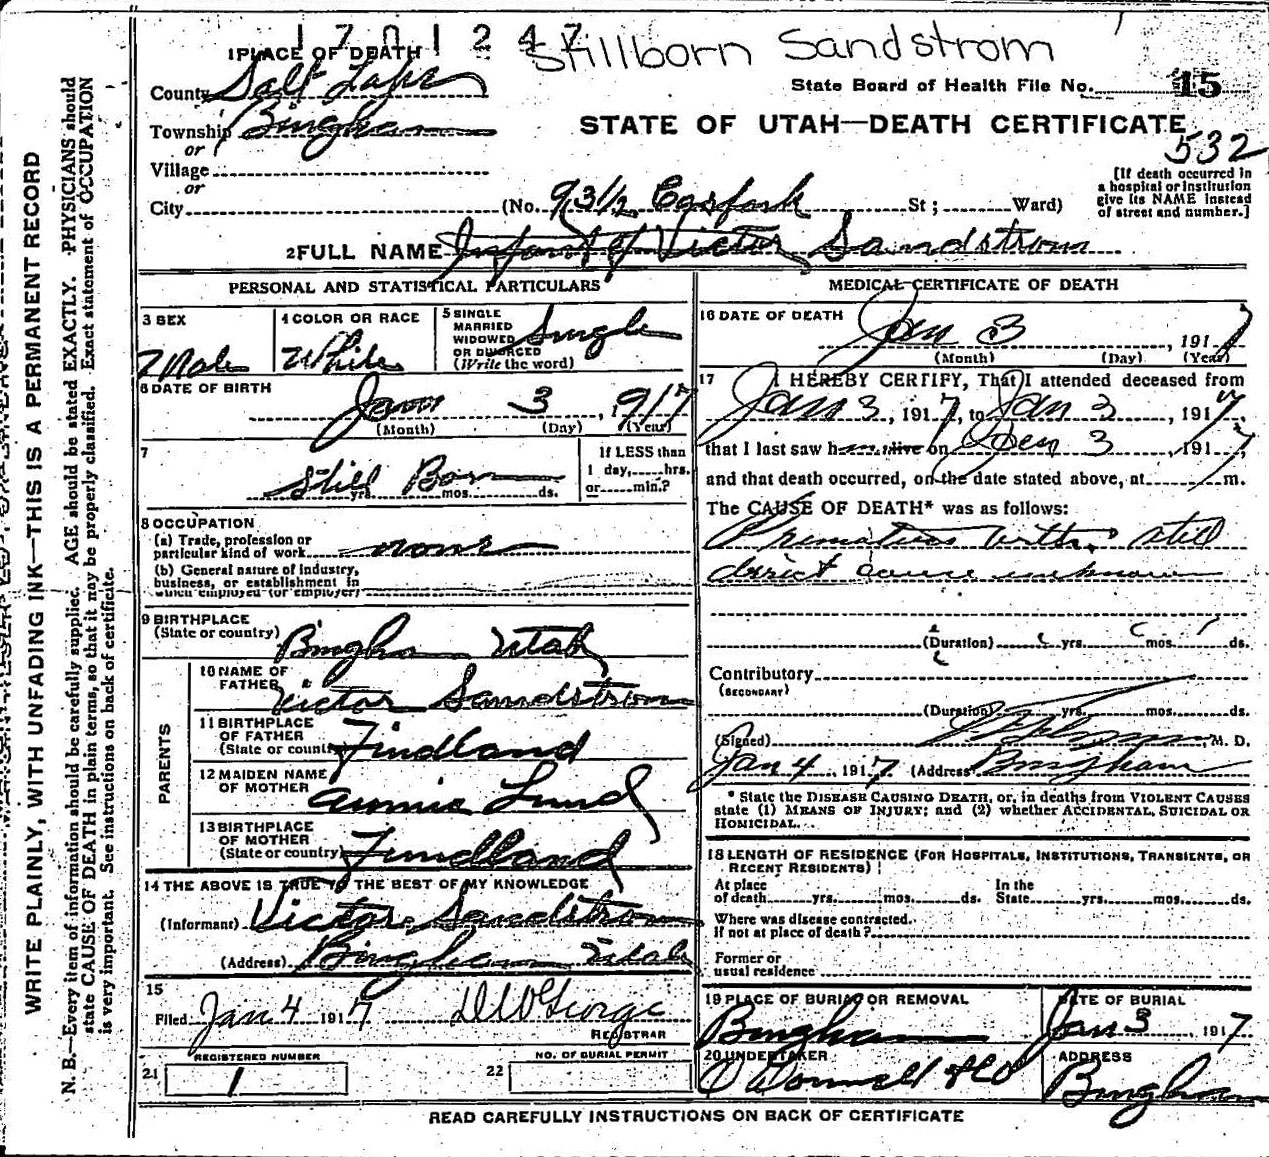 1701247
Stillborn Sandstrom
1 PLACE OF DEATH
County Salt Lake
State Board of Health File No. 15
Township Bingham
or
STATE OF UTAH—DEATH CERTIFICATE
532
Village
or
City (No. 93 1/2 Carfork St; Ward)
[If death occurred in
a hospital or institution
give its NAME instead
of street and number.]
2 FULL NAME Infant of Victor Sandstrom
PERSONAL AND STATISTICAL PARTICULARS
3 SEX
Male
4 COLOR OR RACE
White
5 SINGLE
MARRIED
WIDOWED
OR DIVORCED
(Write the word)
Single
6 DATE OF BIRTH
Jan 3, 1917
(Month) (Day) (Year)
7
Still Born
yrs. mos. ds.
If LESS than
1 day, hrs.
or min.?
8 OCCUPATION
(a) Trade, profession or
particular kind of work none
(b) General nature of industry,
business, or establishment in
which employed (or employer)
9 BIRTHPLACE
(State or country) Bingham Utah
PARENTS
10 NAME OF
FATHER Victor Sandstrom
11 BIRTHPLACE
OF FATHER
(State or country) Findland
12 MAIDEN NAME
OF MOTHER Annie Lund
13 BIRTHPLACE
OF MOTHER
(State or country) Findland
14 THE ABOVE IS TRUE TO THE BEST OF MY KNOWLEDGE
(Informant) Victor Sandstrom
(Address) Bingham Utah
15
Filed Jan 4 1917
REGISTRAR
REGISTERED NUMBER
21 1
NO. OF BURIAL PERMIT
22
MEDICAL CERTIFICATE OF DEATH
16 DATE OF DEATH
Jan 3, 1917
(Month) (Day) (Year)
17 I HEREBY CERTIFY, That I attended deceased from
Jan 3, 1917, to Jan 3, 1917,
that I last saw h alive on Jan 3, 1917,
and that death occurred, on the date stated above, at m.
The CAUSE OF DEATH* was as follows:
Premature birth. still
direct cause unknown
(Duration) yrs. mos. ds.
Contributory
(SECONDARY)
(Duration) yrs. mos. ds.
(Signed) , M. D.
Jan 4, 1917 (Address) Bingham
* State the DISEASE CAUSING DEATH, or, in deaths from VIOLENT CAUSES
state (1) MEANS OF INJURY; and (2) whether ACCIDENTAL, SUICIDAL OR
HOMICIDAL.
18 LENGTH OF RESIDENCE (FOR HOSPITALS, INSTITUTIONS, TRANSIENTS, OR
RECENT RESIDENTS)
At place In the
of death yrs. mos. ds. State yrs. mos. ds.
Where was disease contracted.
If not at place of death?
Former or
usual residence
19 PLACE OF BURIAL OR REMOVAL
Bingham
DATE OF BURIAL
Jan 3, 1917
20 UNDERTAKER
O'Donnell & Co
ADDRESS
Bingham
READ CAREFULLY INSTRUCTIONS ON BACK OF CERTIFICATE
WRITE PLAINLY, WITH UNFADING INK—THIS IS A PERMANENT RECORD
N. B.—Every item of information should be carefully supplied. AGE should be stated EXACTLY. PHYSICIANS should
state CAUSE OF DEATH in plain terms, so that it may be properly classified. Exact statement of OCCUPATION
is very important. See instructions on back of certificate.